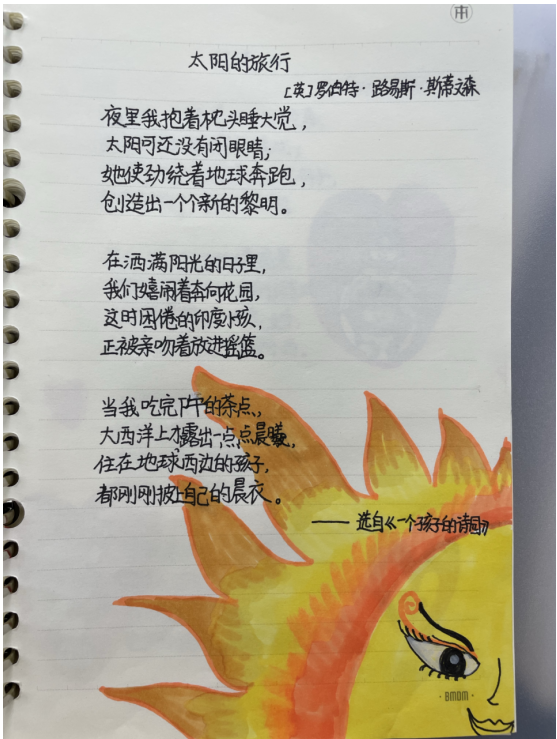 太阳的旅行
[英]罗伯特·路易斯·斯蒂文森
夜里我抱着枕头睡大觉，
太阳可还没有闭眼睛；
她使劲绕着地球奔跑，
创造出一个个新的黎明。
在洒满阳光的日子里，
我们嬉闹着奔向花园，
这时困倦的印度小孩，
正被亲吻着放进摇篮。
当我吃完下午的茶点，
大西洋上才露出一点点晨曦，
住在地球西边的孩子，
都刚刚披上自己的晨衣。
—— 选自《一个孩子的诗园》
·BMDM·